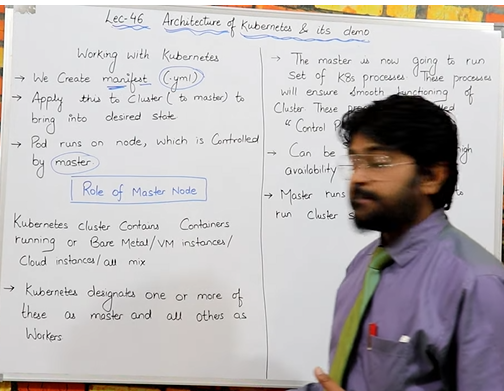 Lec-46 Architecture of Kubernetes & its demo
Working with Kubernetes
→ We Create manifest (.yml)
→ Apply this to Cluster (to master) to
bring into desired state
→ Pod runs on node, which is Controlled
by master
Role of Master Node
Kubernetes cluster Contains Containers
running or Bare Metal/VM instances/
Cloud instances/all mix
→ Kubernetes designates one or more of
these as master and all others as
Workers
→ The master is now going to run
Set of K8s processes These processes
will ensure Smooth functioning of
Cluster These
"Control
→ Can be high
availability
→ Master runs to
run Cluster